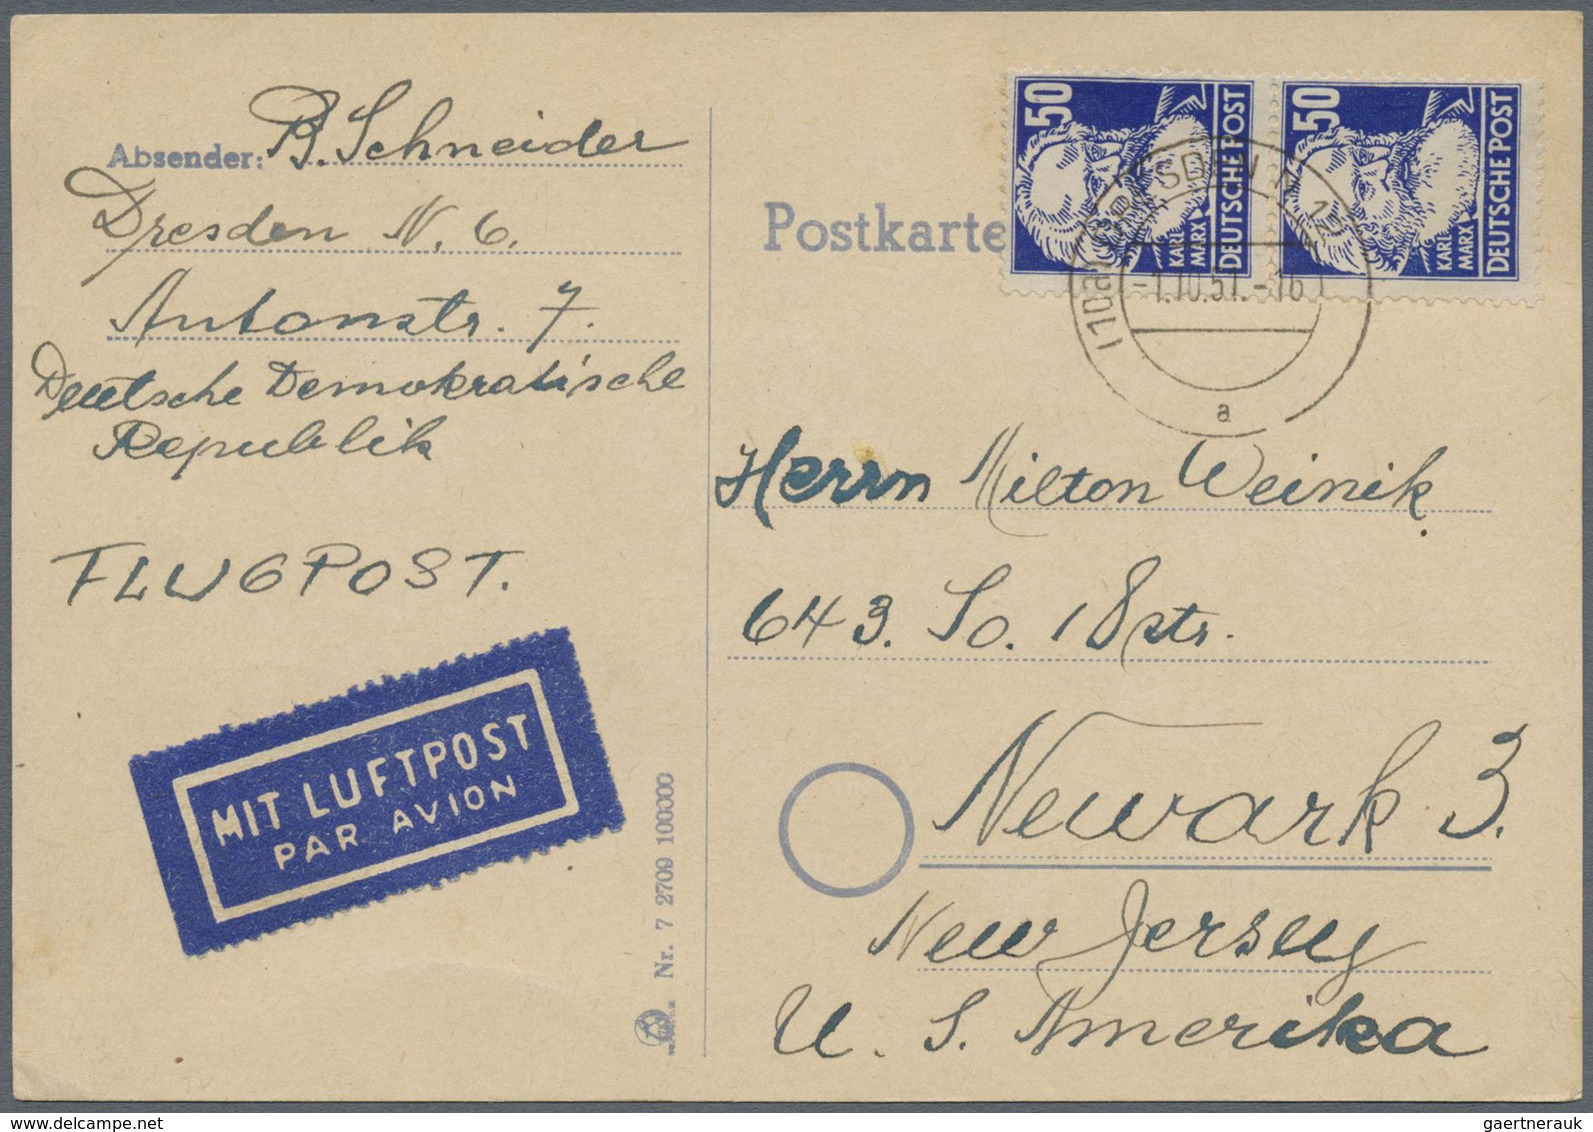 Absender: B. Schneider
Dresden N. 6.
Antonstr. 7.
Deutsche Demokratische
Republik
FLUGPOST.
MIT LUFTPOST
PAR AVION
Nr. 7 2709 100000
Postkarte
50
KARL
MARX
DEUTSCHE POST
50
KARL
MARX
DEUTSCHE POST
(10a) DRESDEN N 12
-1.10.51.-16
a
Herrn Milton Weinik
643. So. 18 str.
Newark 3.
New Jersey
U. S. Amerika
gaertnerauk@delcampe.net